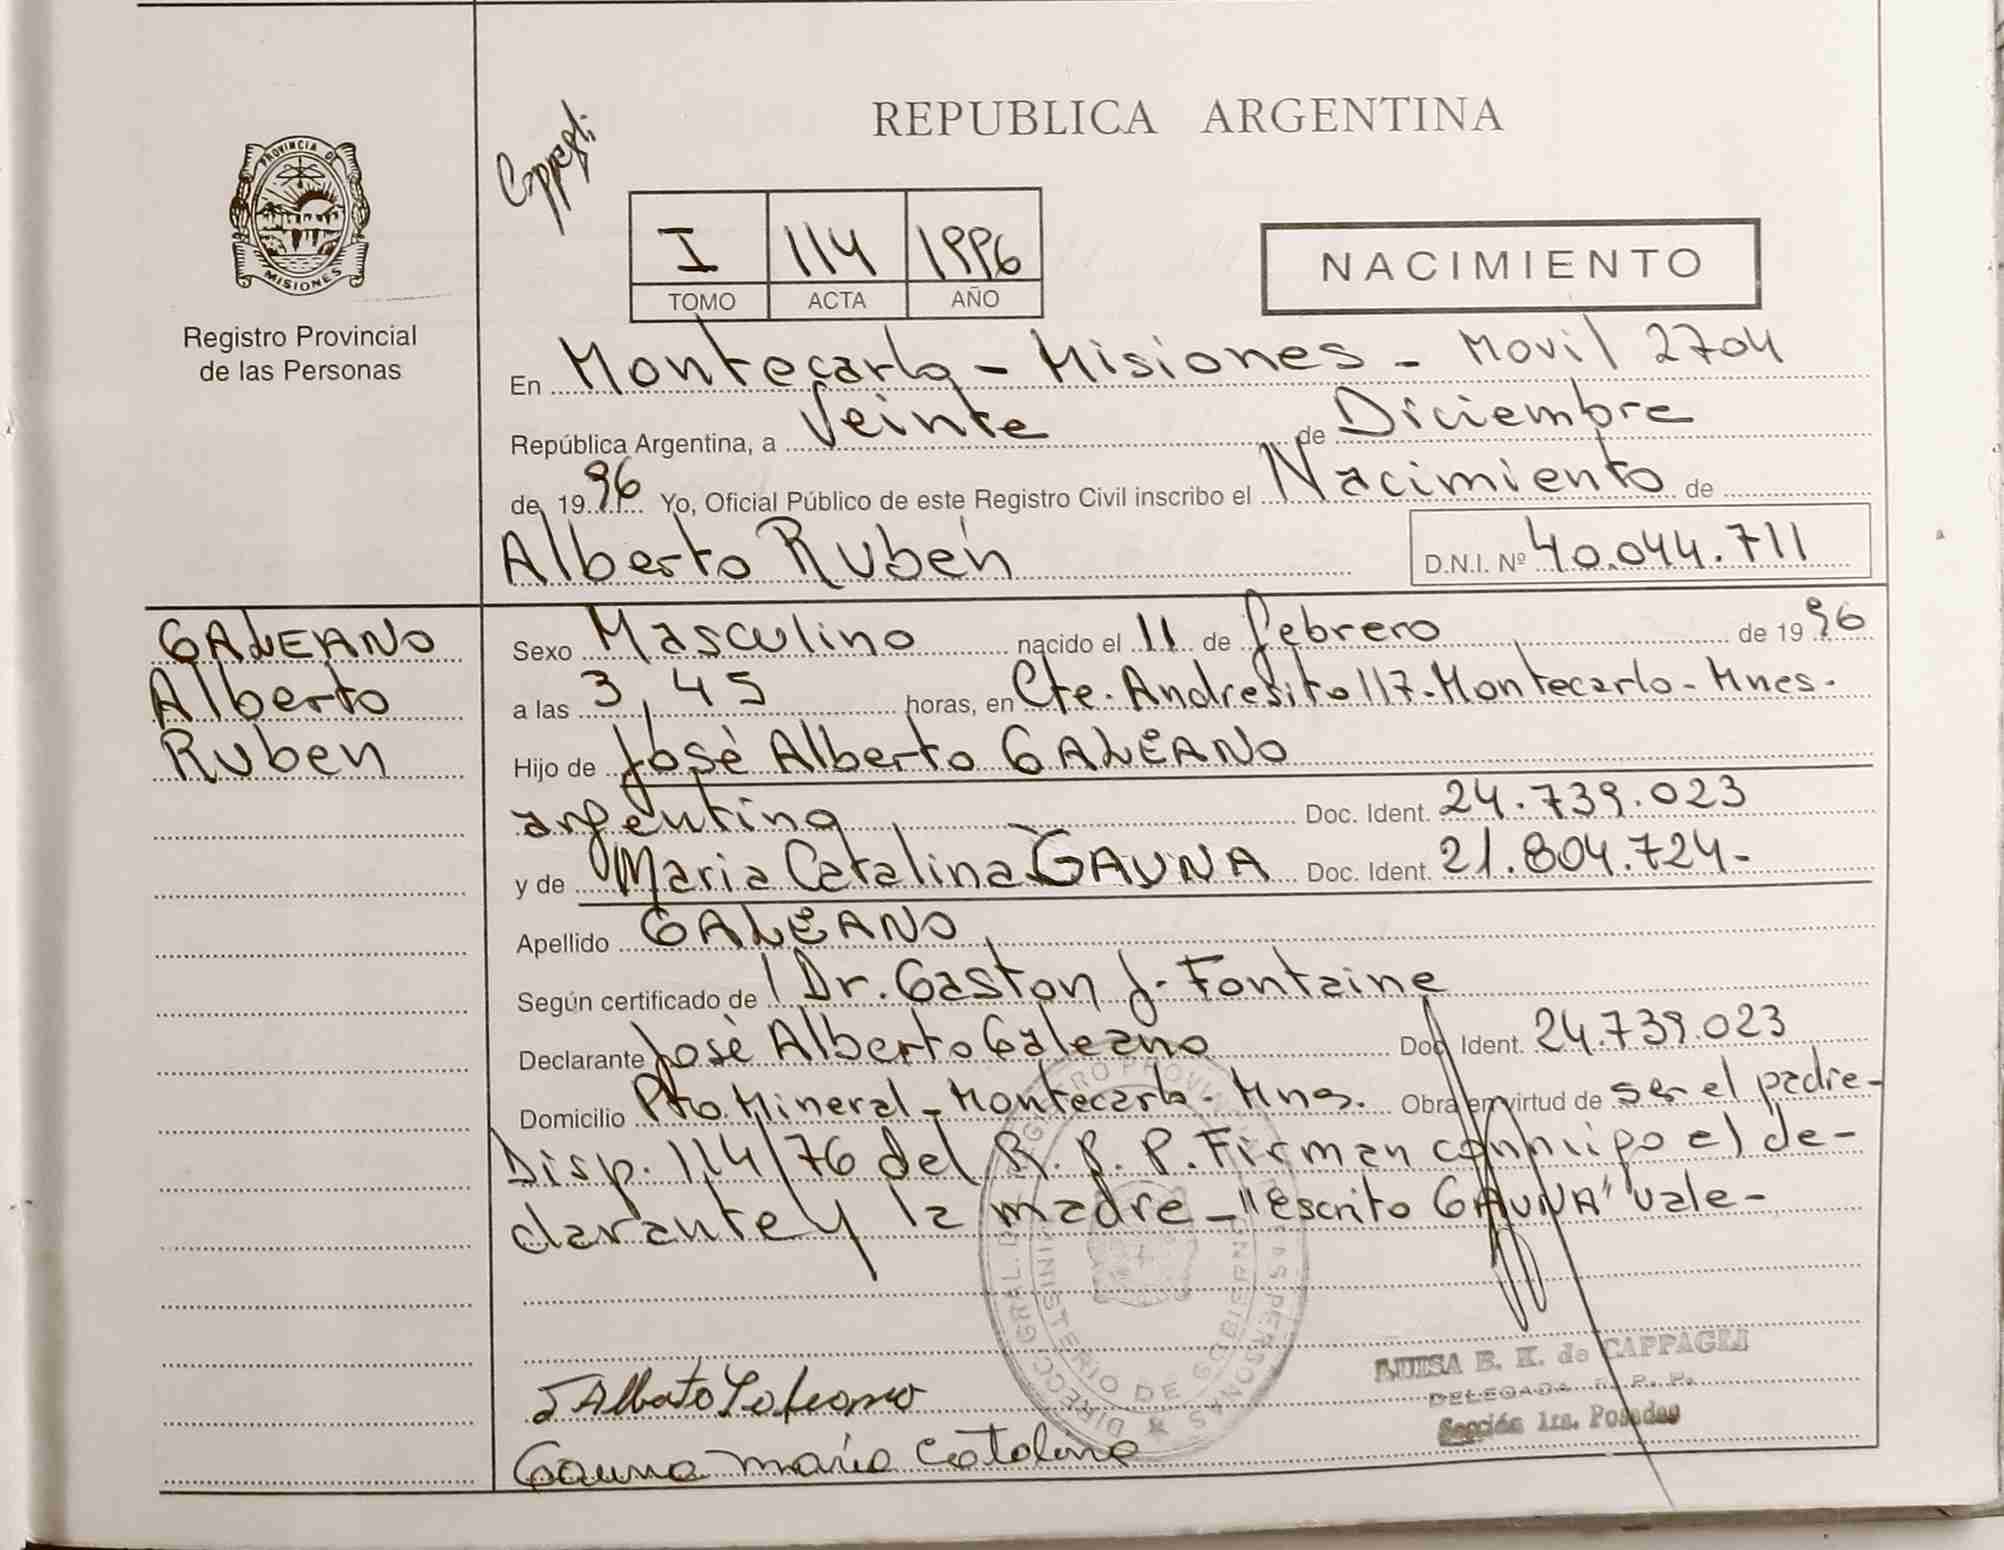 PROVINCIA DE
MISIONES
Registro Provincial
de las Personas
REPUBLICA ARGENTINA
I 114 1996
TOMO ACTA AÑO
NACIMIENTO
En Montecarlo - Misiones - Movil 2704
República Argentina, a Veinte de Diciembre
de 1996 Yo, Oficial Público de este Registro Civil inscribo el Nacimiento de
Alberto Rubén D.N.I. Nº 40.044.711
GALEANO
Alberto
Ruben
Sexo Masculino nacido el 11 de febrero de 1996
a las 3,45 horas, en Cte. Andresito 117-Montecarlo-Mnes.
Hijo de José Alberto GALEANO
argentino Doc. Ident. 24.739.023
y de Maria Catalina GAUNA Doc. Ident. 21.804.724-
Apellido GALEANO
Según certificado de Dr. Gaston J. Fontaine
Declarante José Alberto Galeano Doc. Ident. 24.739.023
Domicilio Pto. Mineral - Montecarlo - Mnes. Obra en virtud de ser el padre-
Disp. 114/76 del R.P.P. Firman conmigo el de-
clarante y la madre - "escrito GAUNA" vale-
DIRECC. GRAL. DEL REGISTRO PROVINCIAL DE LAS PERSONAS
MINISTERIO DE GOBIERNO
LUISA B. K. de CAPPAGLI
DELEGADA R. P. P.
Sección 1ra. Posadas
J Alberto Galeano
Gauna maría Catalina